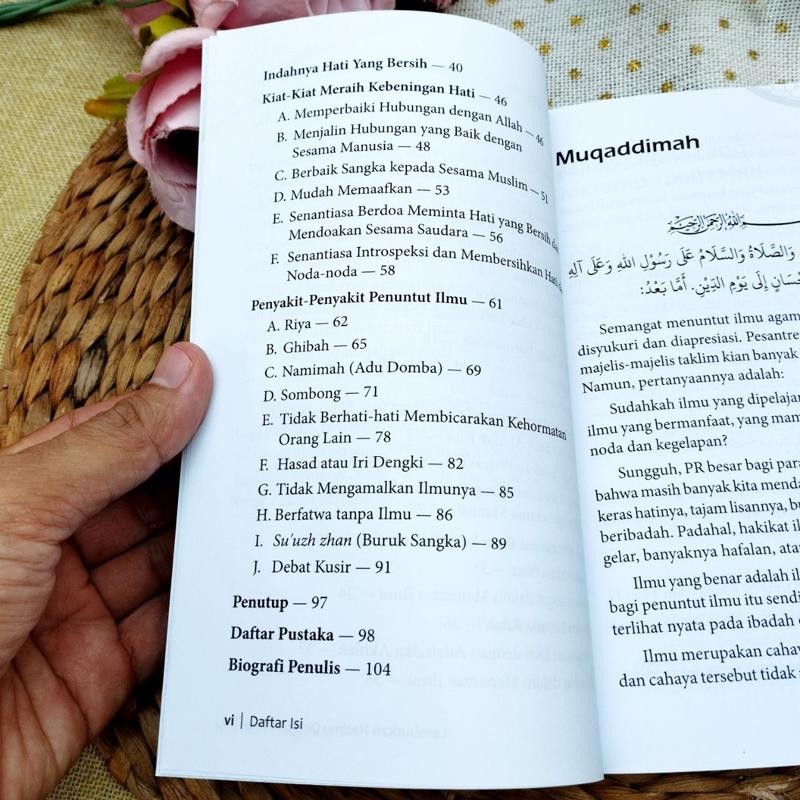 Indahnya Hati Yang Bersih — 40
Kiat-Kiat Meraih Kebeningan Hati — 46
A. Memperbaiki Hubungan dengan Allah — 46
B. Menjalin Hubungan yang Baik dengan
Sesama Manusia — 48
C. Berbaik Sangka kepada Sesama Muslim — 51
D. Mudah Memaafkan — 53
E. Senantiasa Berdoa Meminta Hati yang Bersih
Mendoakan Sesama Saudara — 56
F. Senantiasa Introspeksi dan Membersihkan Hati
Noda-noda — 58
Penyakit-Penyakit Penuntut Ilmu — 61
A. Riya — 62
B. Ghibah — 65
C. Namimah (Adu Domba) — 69
D. Sombong — 71
E. Tidak Berhati-hati Membicarakan Kehormatan
Orang Lain — 78
F. Hasad atau Iri Dengki — 82
G. Tidak Mengamalkan Ilmunya — 85
H. Berfatwa tanpa Ilmu — 86
I. Su'uzh zhan (Buruk Sangka) — 89
J. Debat Kusir — 91
Penutup — 97
Daftar Pustaka — 98
Biografi Penulis — 104
vi | Daftar Isi
Muqaddimah
وَالصَّلَاةُ وَالسَّلَامُ عَلَى رَسُوْلِ اللهِ وَعَلَى آلِهِ
إِلَى يَوْمِ الدِّيْنِ. أَمَّا بَعْدُ:
Semangat menuntut ilmu
disyukuri dan diapresiasi.
majelis-majelis taklim kian banyak
Namun, pertanyaannya adalah:
Sudahkah ilmu yang
ilmu yang bermanfaat, yang
noda dan kegelapan?
Sungguh, PR besar bagi
bahwa masih banyak kita
keras hatinya, tajam lisannya,
beribadah. Padahal, hakikat
gelar, banyaknya hafalan,
Ilmu yang benar adalah
bagi penuntut ilmu itu
terlihat nyata pada ibadah
Ilmu merupakan
dan cahaya tersebut tidak